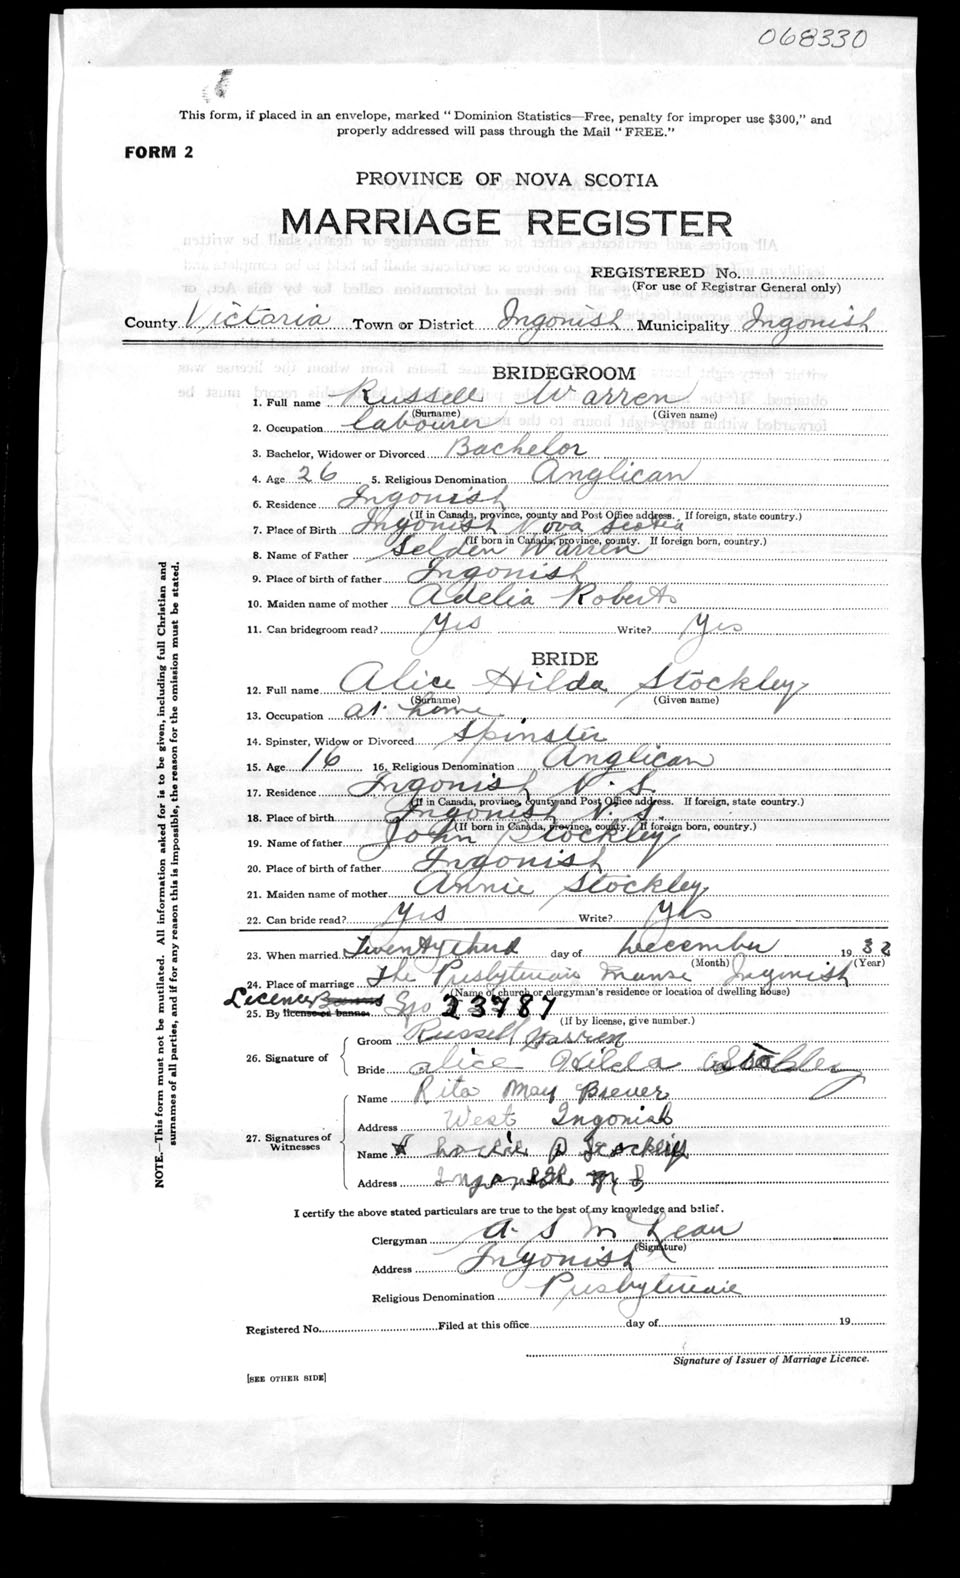 068330
This form, if placed in an envelope, marked "Dominion Statistics—Free, penalty for improper use $300," and
properly addressed will pass through the Mail "FREE."
FORM 2
PROVINCE OF NOVA SCOTIA
MARRIAGE REGISTER
REGISTERED No.
(For use of Registrar General only)
County Victoria Town or District Ingonish Municipality Ingonish
BRIDEGROOM
1. Full name Russell Warren
(Surname) (Given name)
2. Occupation labourer
3. Bachelor, Widower or Divorced Bachelor
4. Age 26 5. Religious Denomination Anglican
6. Residence Ingonish
(If in Canada, province, county and Post Office address. If foreign, state country.)
7. Place of Birth Ingonish Nova Scotia
(If born in Canada, province, county. If foreign born, country.)
8. Name of Father Selden Warren
9. Place of birth of father Ingonish
10. Maiden name of mother Adelia Roberts
11. Can bridegroom read? Yes Write? Yes
BRIDE
12. Full name Alice Hilda Stockley
(Surname) (Given name)
13. Occupation at home
14. Spinster, Widow or Divorced Spinster
15. Age 16 16. Religious Denomination Anglican
17. Residence Ingonish N. S.
(If in Canada, province, county and Post Office address. If foreign, state country.)
18. Place of birth Ingonish N. S.
(If born in Canada, province, county. If foreign born, country.)
19. Name of father John Stockley
20. Place of birth of father Ingonish
21. Maiden name of mother Annie Stockley
22. Can bride read? Yes Write? Yes
23. When married Twenty third day of December 1932
(Month) (Year)
24. Place of marriage The Presbyterian Manse Ingonish
(Name of church or clergyman's residence or location of dwelling house)
Licence
25. By license or banns 23787
(If by license, give number.)
26. Signature of
Groom Russell Warren
Bride Alice Hilda Stockley
27. Signatures of
Witnesses
Name Rita May Brewer
Address West Ingonish
Name Stockley
Address Ingonish N S
I certify the above stated particulars are true to the best of my knowledge and belief.
Clergyman A. S. McLean
(Signature)
Address Ingonish
Religious Denomination Presbyterian
Registered No. Filed at this office day of 19
Signature of Issuer of Marriage Licence.
[SEE OTHER SIDE]
NOTE.—This form must not be mutilated. All information asked for is to be given, including full Christian and
surnames of all parties, and if for any reason this is impossible, the reason for the omission must be stated.